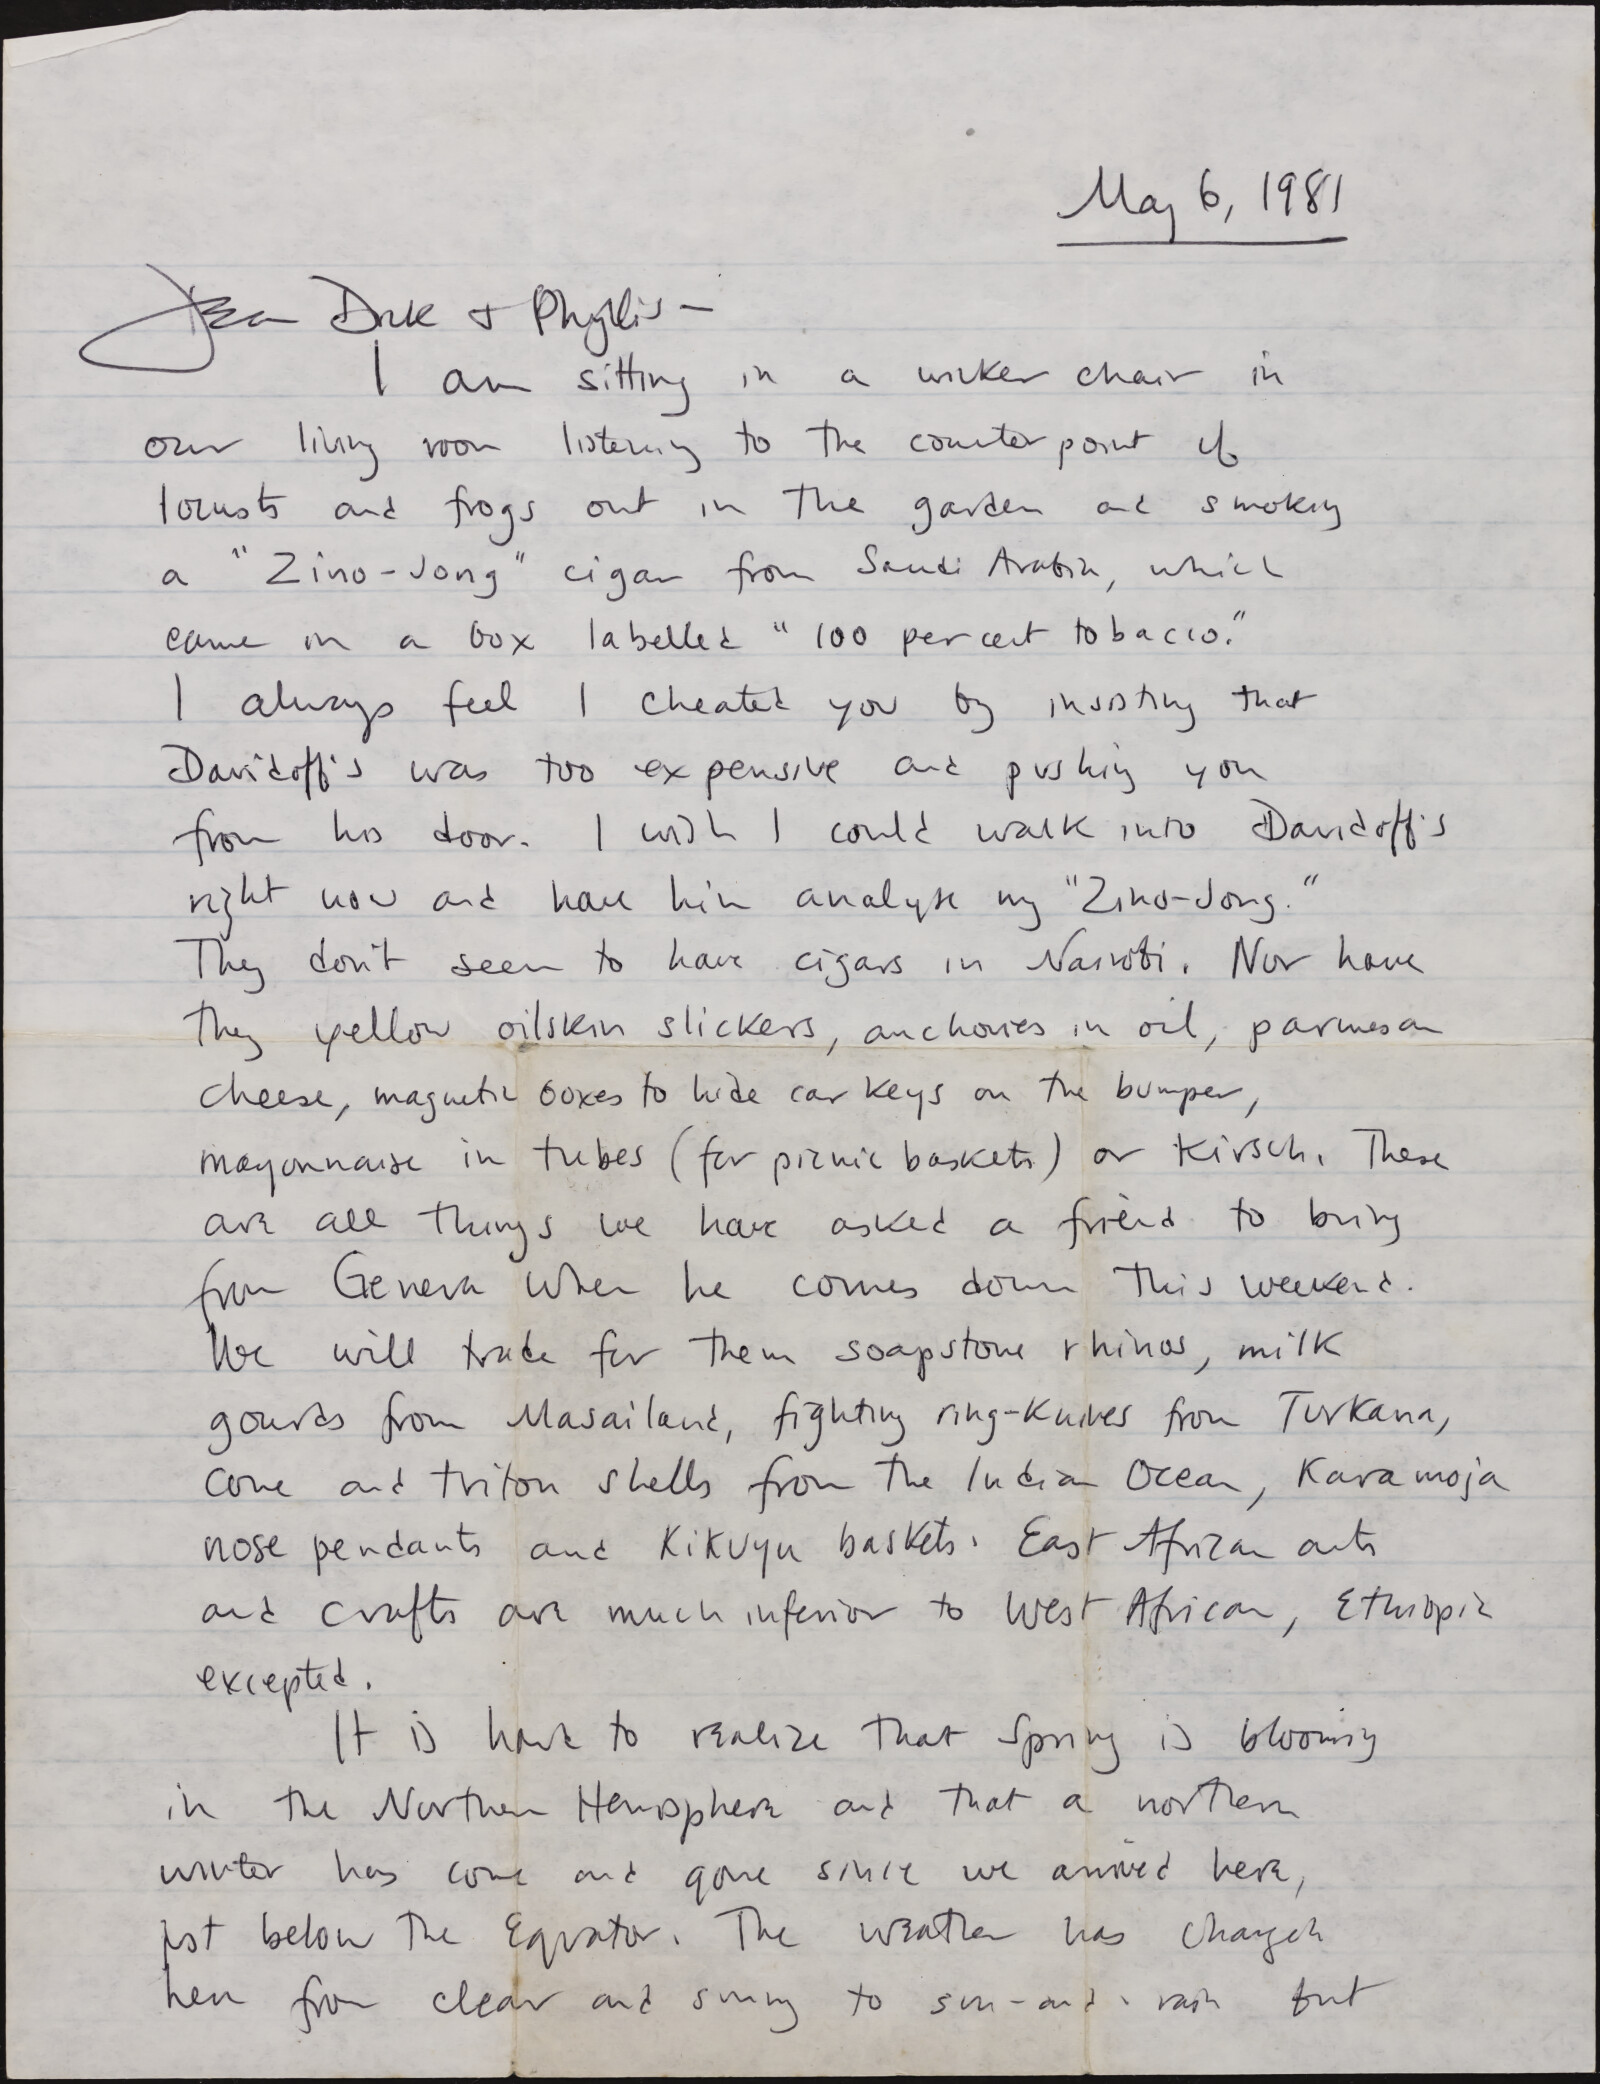 May 6, 1981
Dear Dick & Phyllis —
I am sitting in a wicker chair in
our living room listening to the counterpoint of
locusts and frogs out in the garden and smoking
a "Zino-Jong" cigar from Saudi Arabia, which
came in a box labelled "100 per cent tobacco."
I always feel I cheated you by insisting that
Davidoff's was too expensive and pushing you
from his door. I wish I could walk into Davidoff's
right now and have him analyse my "Zino-Jong."
They don't seem to have cigars in Nairobi. Nor have
they yellow oilskin slickers, anchovies in oil, parmesan
cheese, magnetic boxes to hide car keys on the bumper,
mayonnaise in tubes (for picnic baskets) or Kirsch. These
are all things we have asked a friend to bring
from Geneva when he comes down this weekend.
We will trade for them soapstone rhinos, milk
gourds from Masailand, fighting ring-knives from Turkana,
cone and triton shells from the Indian Ocean, Karamoja
nose pendants and Kikuyu baskets. East African arts
and crafts are much inferior to West African, Ethiopia
excepted.
It is hard to realize that Spring is blooming
in the Northern Hemisphere and that a northern
winter has come and gone since we arrived here,
just below the Equator. The weather has changed
here from clear and sunny to sun-and-rain but